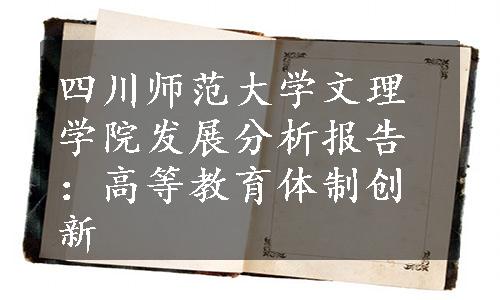 四川师范大学文理
学院发展分析报告
：高等教育体制创
新